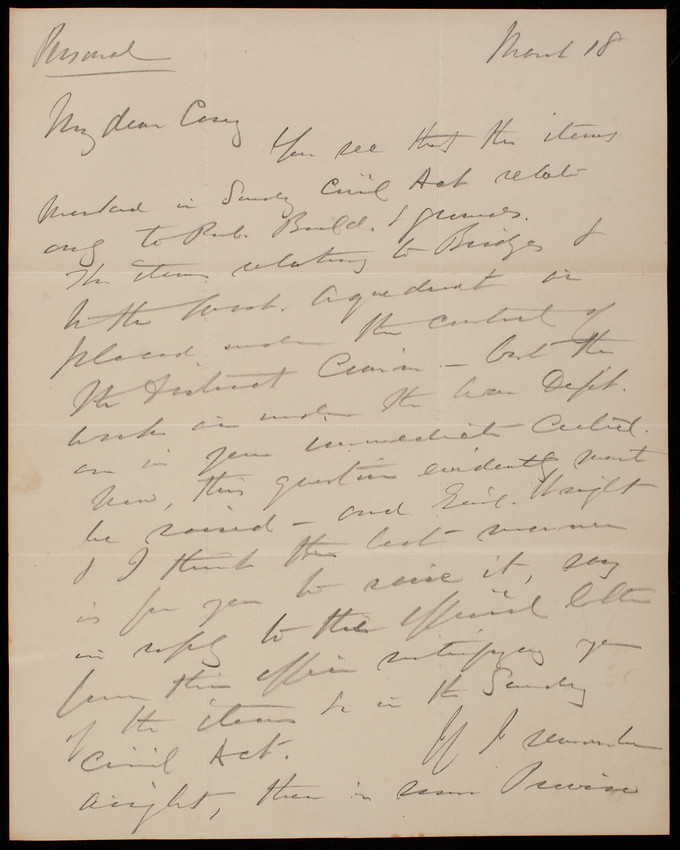 Personal
March 18
My dear Casey
You see that the items
marked in Sundry Civil Act relat-
ing to Pub. Build. & grounds.
The items relating to Bridges &
to the Wash. Aqueduct are
placed under the control of
the District Comm. – but the
works are under the War Dept.
are in your immediate Control.
Now, this question evidently must
be raised – and Genl. Wright
& I think the best manner
is for you to raise it, say
in reply to the official letter
from this office notifying you
of the items in the Sundry
Civil Act. If I remember
aright, there is some Proviso